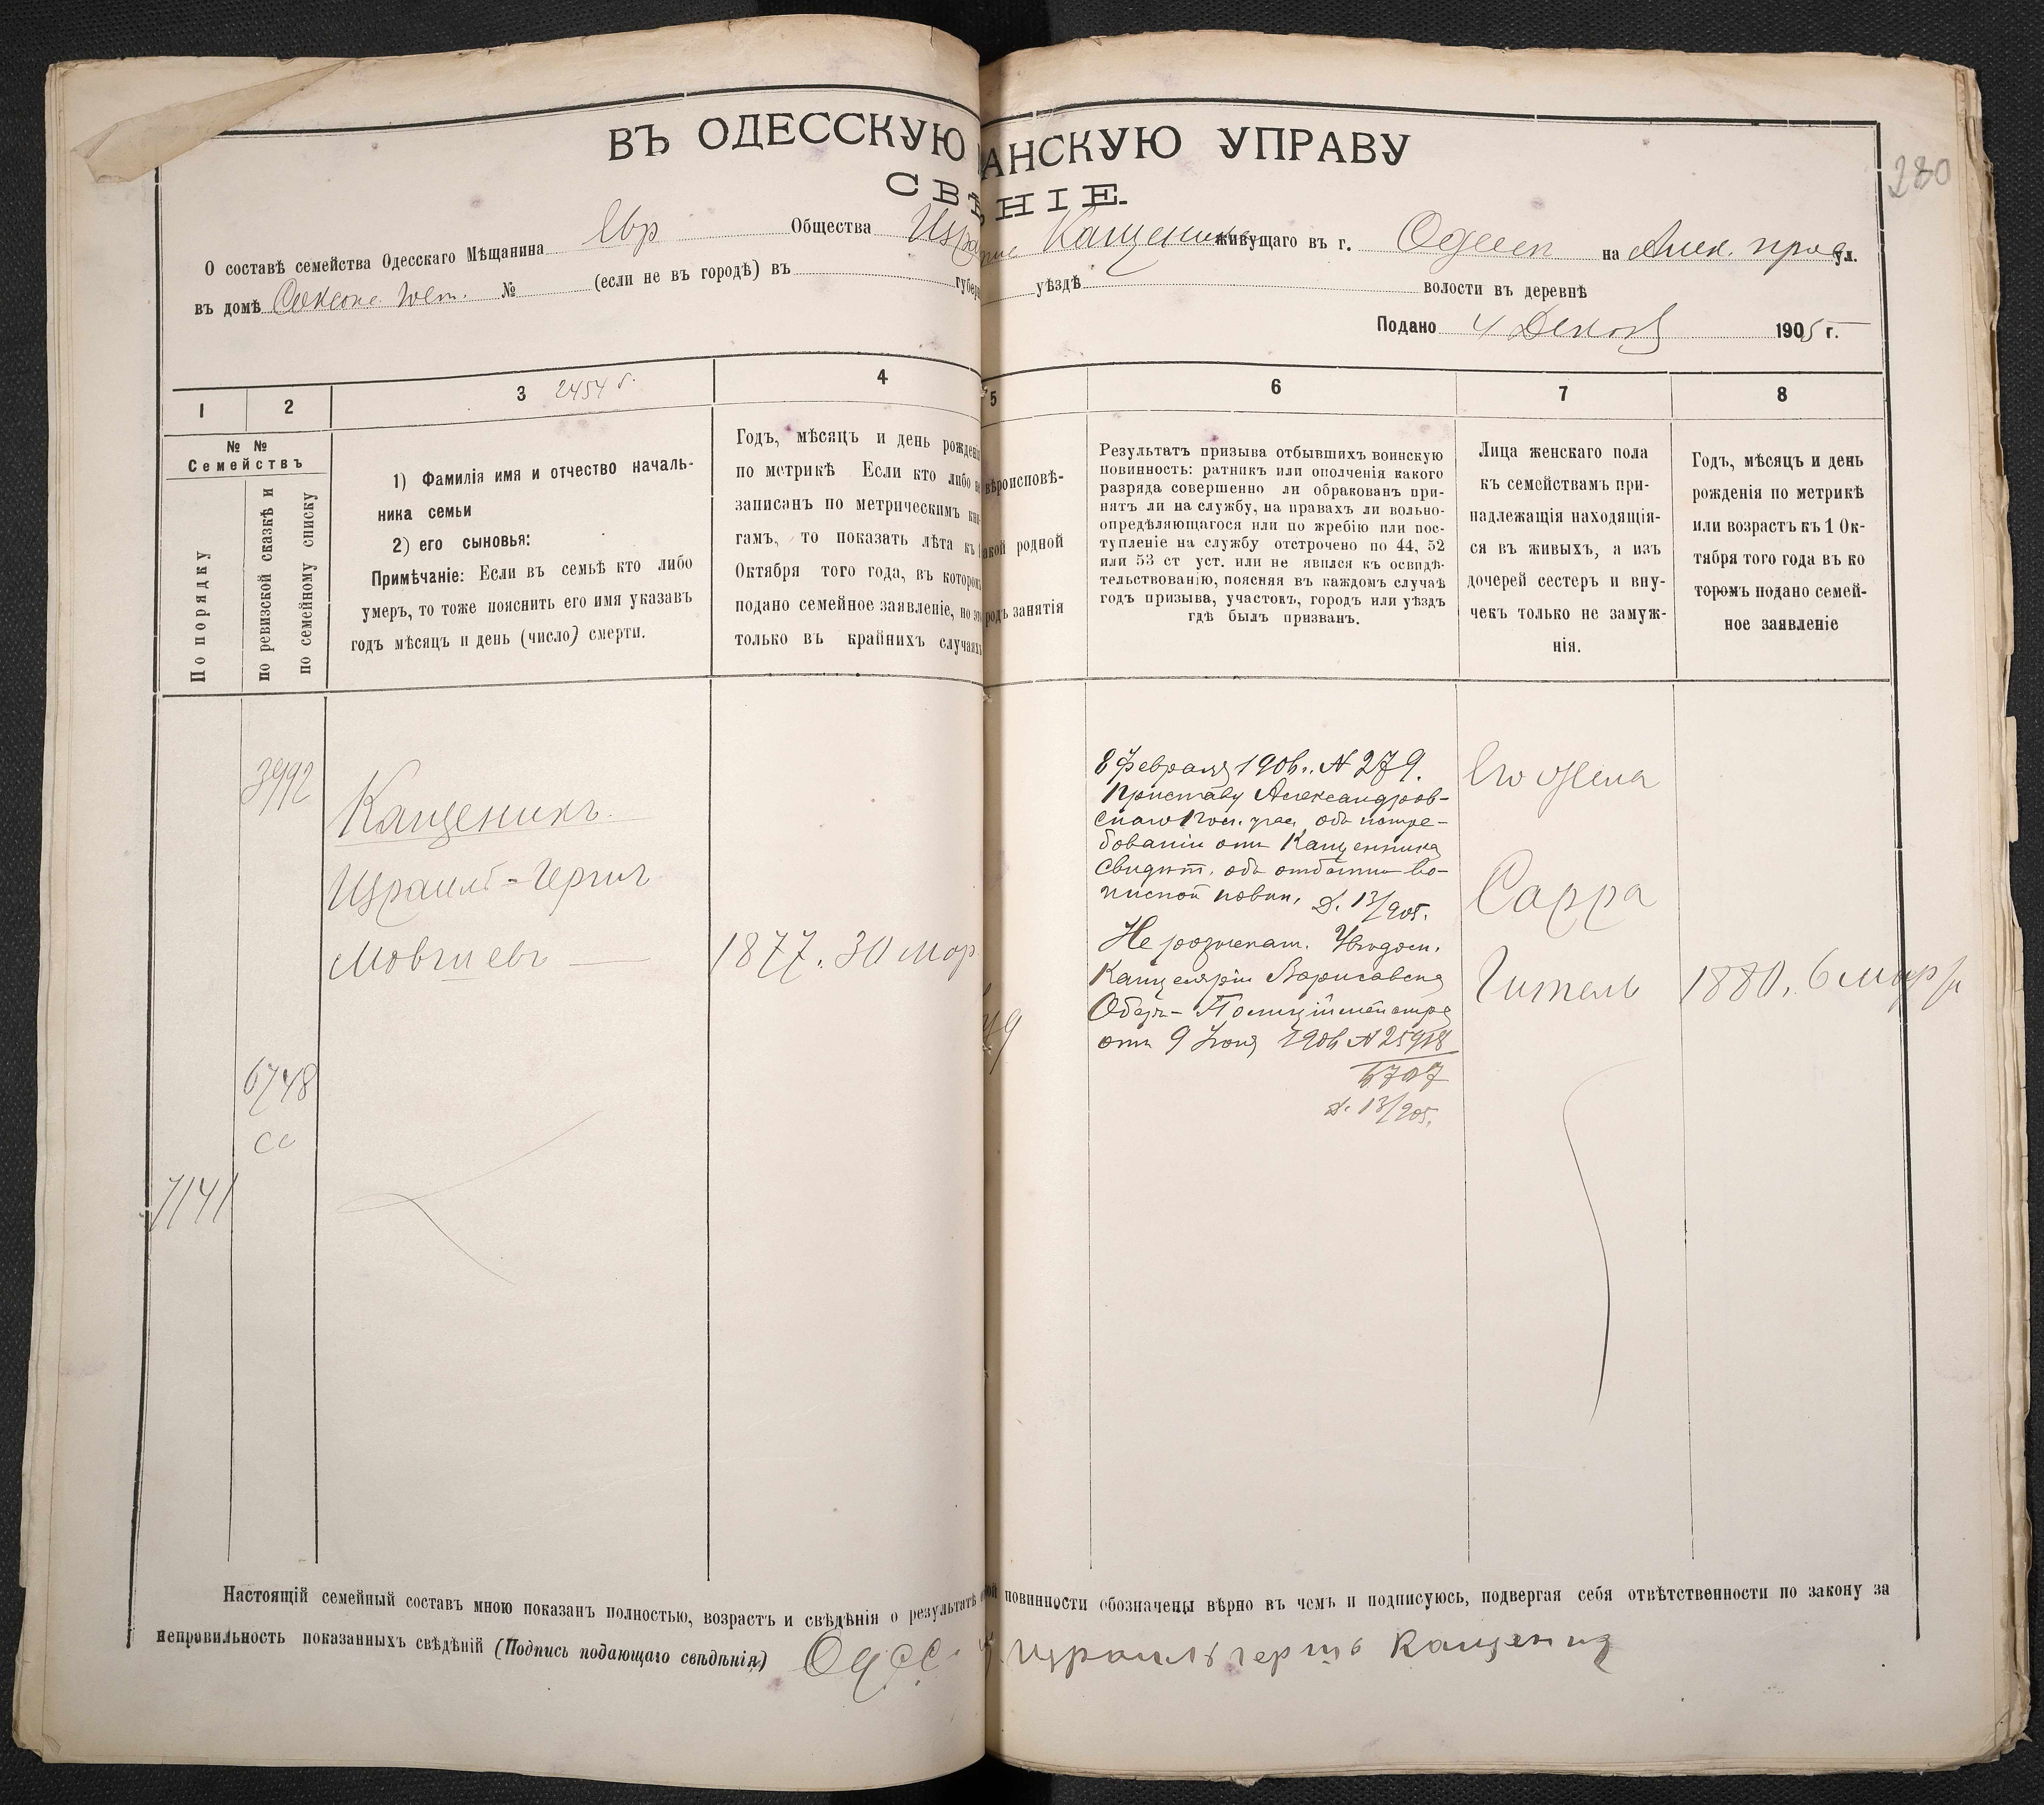 280
ВЪ ОДЕССКУЮ АНСКУЮ УПРАВУ
СВѢ НІЕ.
О составѣ семейства Одесскаго Мѣщанина Евр Общества Изра Кащеника живущаго въ г. Одесси на Алек. просп ул.
въ домѣ № (если не въ городѣ) въ губер уѣздѣ волости въ деревнѣ
Подано 4 Декаб 1905 г.
1 2 3 2454 4 5 6 7 8
№ №
Семействъ
По порядку
по ревизской сказкѣ и
по семейному списку
1) Фамилія имя и отчество началь-
ника семьи
2) его сыновья:
Примѣчаніе: Если въ семьѣ кто либо
умеръ, то тоже пояснить его имя указавъ
годъ мѣсяцъ и день (число) смерти.
Годъ, мѣсяцъ и день рожденія
по метрикѣ Если кто либо не
записанъ по метрическимъ кни-
гамъ, то показать лѣта къ 1
Октября того года, въ котором
подано семейное заявленіе, но это
только въ крайнихъ случаяхъ
вѣроисповѣ-
акой родной
родъ занятія
Результатъ призыва отбывшихъ воинскую
повинность: ратникъ или ополченія какого
разряда совершенно ли обракованъ при-
нятъ ли на службу, на правахъ ли вольно-
опредѣляющагося или по жребію или пос-
тупленіе на службу отстрочено по 44, 52
или 53 ст уст. или не явился къ освидѣ-
тельствованію, поясняя въ каждомъ случаѣ
годъ призыва, участокъ, городъ или уѣздъ
гдѣ былъ призванъ.
Лица женскаго пола
къ семействамъ при-
надлежащія находящія-
ся въ живыхъ, а изъ
дочерей сестеръ и вну-
чекъ только не замуж-
нія.
Годъ, мѣсяцъ и день
рожденія по метрикѣ
или возрастъ къ 1 Ок-
тября того года въ ко
торомъ подано семей-
ное заявленіе
3992
Кащеникъ
Израиль-Герши
Мовшевъ
1877. 30 мар
6748
сс
7141
8 Февраля 1906 г. N 279.
Приставу Александров-
скаго пол. учас. объ истре-
бованіи отъ Кащенника
свидѣт. объ отбытіи во-
инской повин. Д. 13/905.
Не розыскан. Увѣдом.
Канцеляріи Варшавска
Оберъ-Полиціймейстера
отъ 9 Іюня 1906 N 25918
5707
Д. 13/905.
Его жена
Сарра
Гитель
1880. 6 мар
Настоящій семейный составъ мною показанъ полностью, возрастъ и свѣдѣнія о результатѣ повинности обозначены вѣрно въ чемъ и подписуюсь, подвергая себя отвѣтственности по закону за
неправильность показанныхъ свѣдѣній (Подпись подающаго свѣдѣнія) Одес. Израиль герш Кащеник